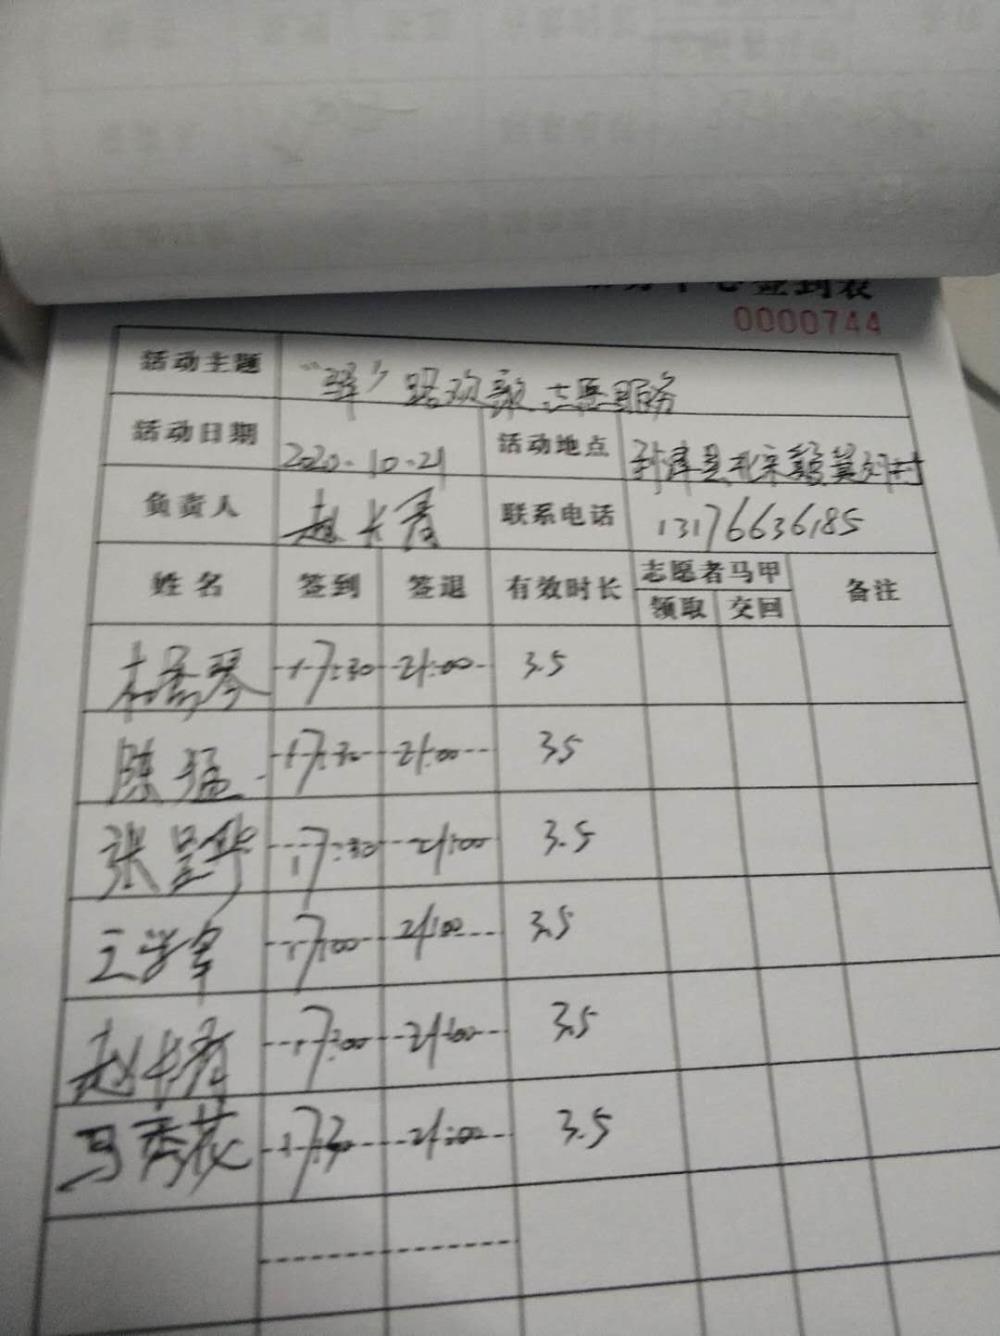 签到表
0000744
活动主题 "驿"路欢歌志愿服务
活动日期 2020.10.21 活动地点
负责人 赵长青 联系电话 13176636185
姓名 签到 签退 有效时长 志愿者马甲 备注
领取 交回
17:30 21:00 3.5
陈猛 17:30 21:00 3.5
张呈华 17:30 21:00 3.5
王学军 17:00 21:00 3.5
赵长青 17:00 21:00 3.5
马秀花 17:30 21:00 3.5